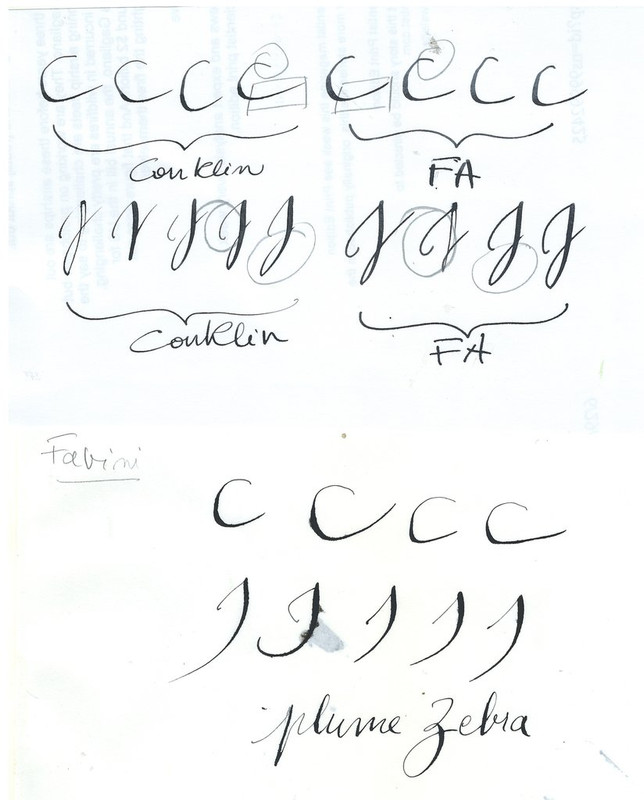 C C C C C C C C
Conklin FA
J J J J J J J J J
Conklin FA
Favini
C C C C
J J J J J
plume Zebra